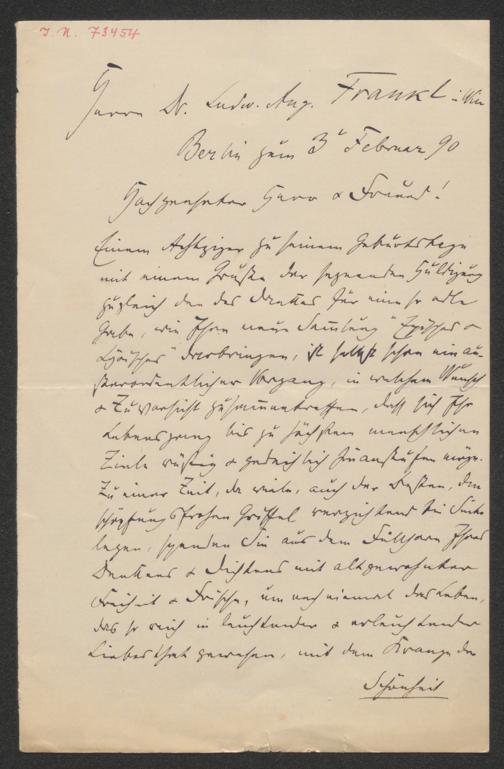 I. N. 73454
Herrn Dr. Ludw. Aug. Frankl in Wien
Berlin zum 3. Februar 90
Hochgeehrter Herr & Freund!
Einem Achtziger zu seinem Geburtstage
mit einem Gruße der segnenden Huldigung
zugleich den des Dankes für eine so edle
Gabe, wie Ihre neue Sammlung "Episches &
Lyrisches" darbringen, ist selbst schon ein au-
ßerordentlicher Vorgang, in welchem Wunsch
& Zuversicht zusammentreffen, daß sich Ihr
Lebensgang bis zu höchsten menschlichen
Ziele rüstig & gedeihlich hinaufstufen möge.
Zu einer Zeit, da viele, auch der Besten, den
schöpfungsfrohen Griffel verzichtend bei Seite
legen, spenden Sie aus dem Füllhorn Ihres
Denkens & Dichtens mit altgewohnter
Freiheit & Frische, um noch einmal das Leben,
das so reich in leuchtender & erleuchtender
Liebesthat gewesen, mit dem Kranze der
Schönheit